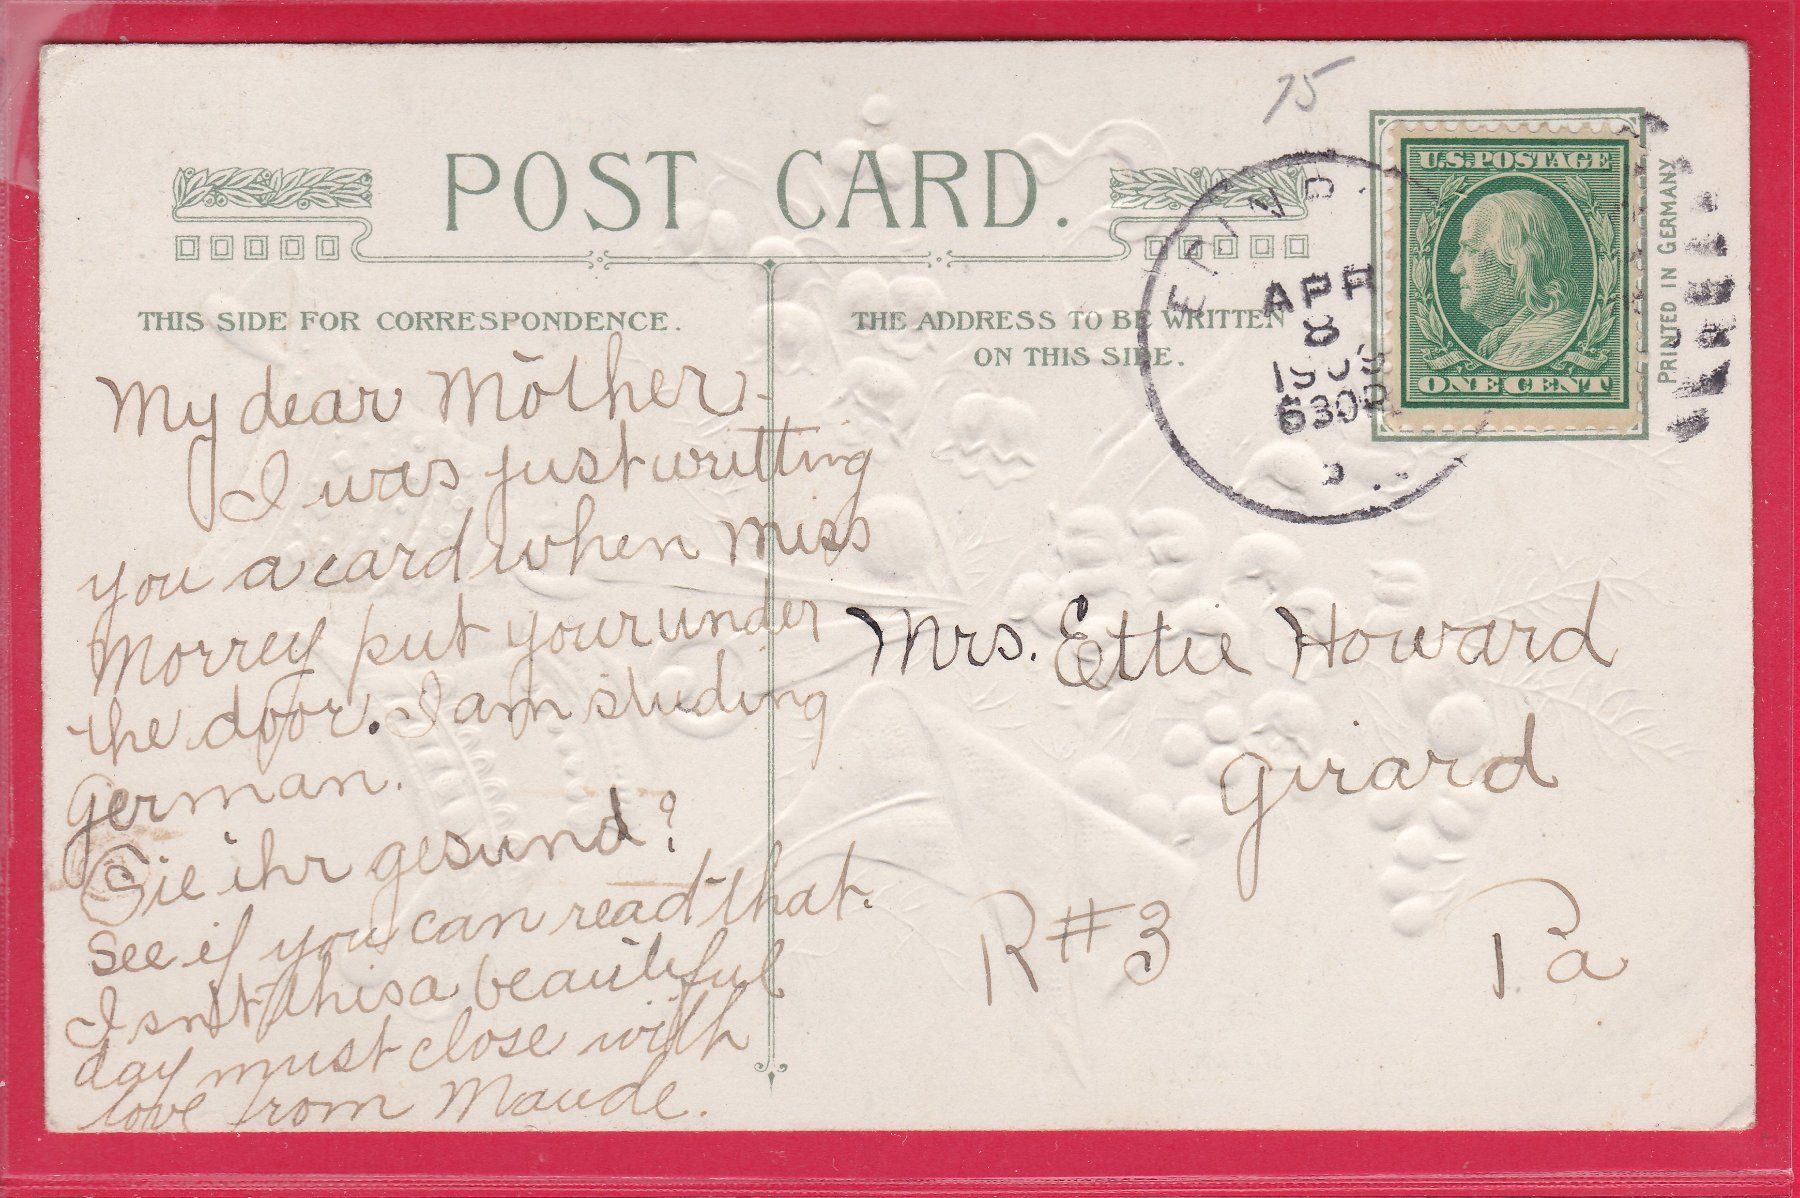 75
POST CARD.
U.S. POSTAGE
ONE CENT
PRINTED IN GERMANY
APR
8
1909
630P
THIS SIDE FOR CORRESPONDENCE.
THE ADDRESS TO BE WRITTEN
ON THIS SIDE.
My dear Mother-
I was just writting
you a card when Miss
Morrey put your under
the door. I am studing
German.
Sie ihr gesund?
See if you can read that.
Isn't this a beautiful
day must close with
love from Maude.
Mrs. Ettie Howard
Girard
R#3 Pa